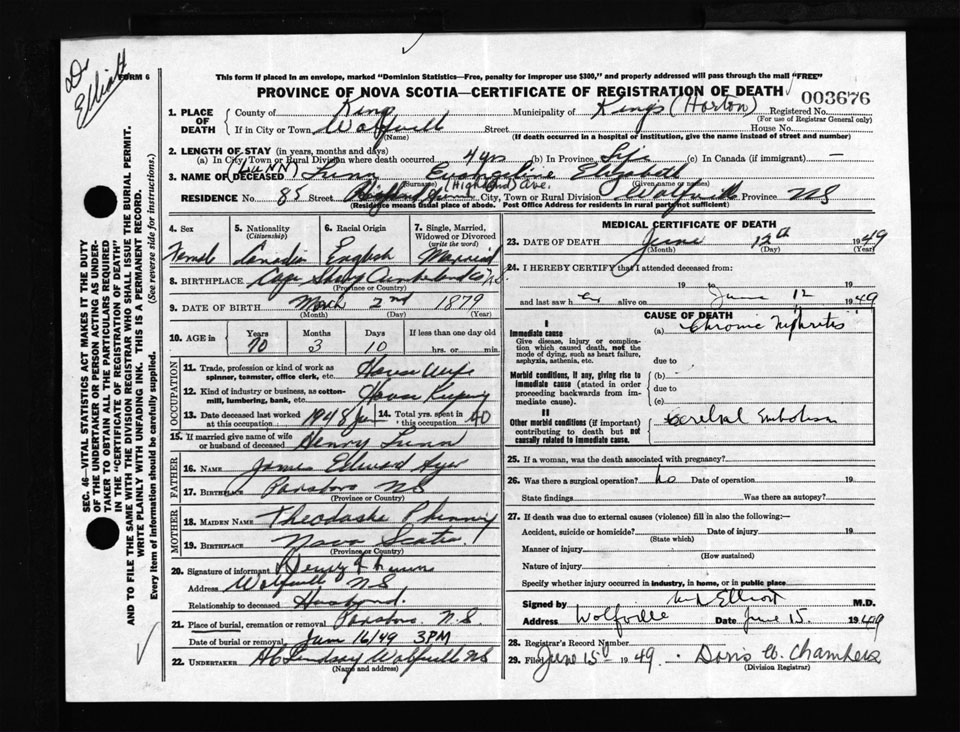 Dr Elliott
FORM 6
This form if placed in an envelope, marked "Dominion Statistics—Free, penalty for improper use $300," and properly addressed will pass through the mail "FREE"
PROVINCE OF NOVA SCOTIA—CERTIFICATE OF REGISTRATION OF DEATH
003676
1. PLACE OF DEATH County of Kings Municipality of Kings (Horton) Registered No.
(For use of Registrar General only)
If in City or Town Wolfville Street House No.
(Name) (If death occurred in a hospital or institution, give the name instead of street and number)
2. LENGTH OF STAY (in years, months and days)
(a) In City, Town or Rural Division where death occurred 4 yrs (b) In Province Life (c) In Canada (if immigrant) —
(LUNN)
3. NAME OF DECEASED Lunn Evangeline Elizabeth
(Surname) (Given name or names)
(Highland) Ave.
RESIDENCE No. 85 Street Highland City, Town or Rural Division Wolfville Province NS
(Residence means usual place of abode. Post Office Address for residents in rural parts not sufficient)
4. Sex Female
5. Nationality (Citizenship) Canadian
6. Racial Origin English
7. Single, Married, Widowed or Divorced (write the word) Married
8. BIRTHPLACE Cape Cumberland Co N.S.
(Province or Country)
9. DATE OF BIRTH March 2nd 1879
(Month) (Day) (Year)
10. AGE in Years 70 Months 3 Days 10 If less than one day old hrs. or min.
OCCUPATION
11. Trade, profession or kind of work as spinner, teamster, office clerk, etc. House wife
12. Kind of industry or business, as cotton-mill, lumbering, bank, etc. House Keeping
13. Date deceased last worked at this occupation 1948 Jan 14. Total yrs. spent in this occupation 40
15. If married give name of wife or husband of deceased Henry Lunn
FATHER
16. NAME James Edward Ayer
17. BIRTHPLACE Parsboro NS
(Province or Country)
MOTHER
18. MAIDEN NAME Phinney
19. BIRTHPLACE Nova Scotia
(Province or Country)
20. Signature of informant Henry Lunn
Address Wolfville N.S.
Relationship to deceased Husband.
21. Place of burial, cremation or removal Parsboro N.S.
Date of burial or removal June 16/49 3PM
22. UNDERTAKER Lindsay Wolfville NS
(Name and address)
MEDICAL CERTIFICATE OF DEATH
23. DATE OF DEATH June 12th 1949
(Month) (Day) (Year)
24. I HEREBY CERTIFY that I attended deceased from:
19 to June 12
and last saw her alive on 1949
CAUSE OF DEATH
I
Immediate cause (a) Chronic Nephritis
Give disease, injury or complication which caused death, not the mode of dying, such as heart failure, asphyxia, asthenia, etc.
due to
Morbid conditions, if any, giving rise to immediate cause (stated in order proceeding backwards from immediate cause).
(b)
due to
(c)
II
Other morbid conditions (if important) contributing to death but not causally related to immediate cause.
Cerebral Embolism
25. If a woman, was the death associated with pregnancy?
26. Was there a surgical operation? No Date of operation 19
State findings Was there an autopsy?
27. If death was due to external causes (violence) fill in also the following:—
Accident, suicide or homicide? Date of injury 19
(State which)
Manner of injury
(How sustained)
Nature of injury
Specify whether injury occurred in industry, in home, or in public place
Signed by Elliott M.D.
Address Wolfville Date June 15. 1949
28. Registrar's Record Number
29. Filed June 15 1949. Doris W. Chambers
(Division Registrar)
SEC. 46—VITAL STATISTICS ACT MAKES IT THE DUTY
OF THE UNDERTAKER OR PERSON ACTING AS UNDERTAKER TO OBTAIN ALL THE PARTICULARS REQUIRED
IN THE "CERTIFICATE OF REGISTRATION OF DEATH"
AND TO FILE THE SAME WITH THE DIVISION REGISTRAR WHO SHALL ISSUE THE BURIAL PERMIT.
WRITE PLAINLY WITH UNFADING INK. THIS IS A PERMANENT RECORD.
Every item of information should be carefully supplied. (See reverse side for instructions.)